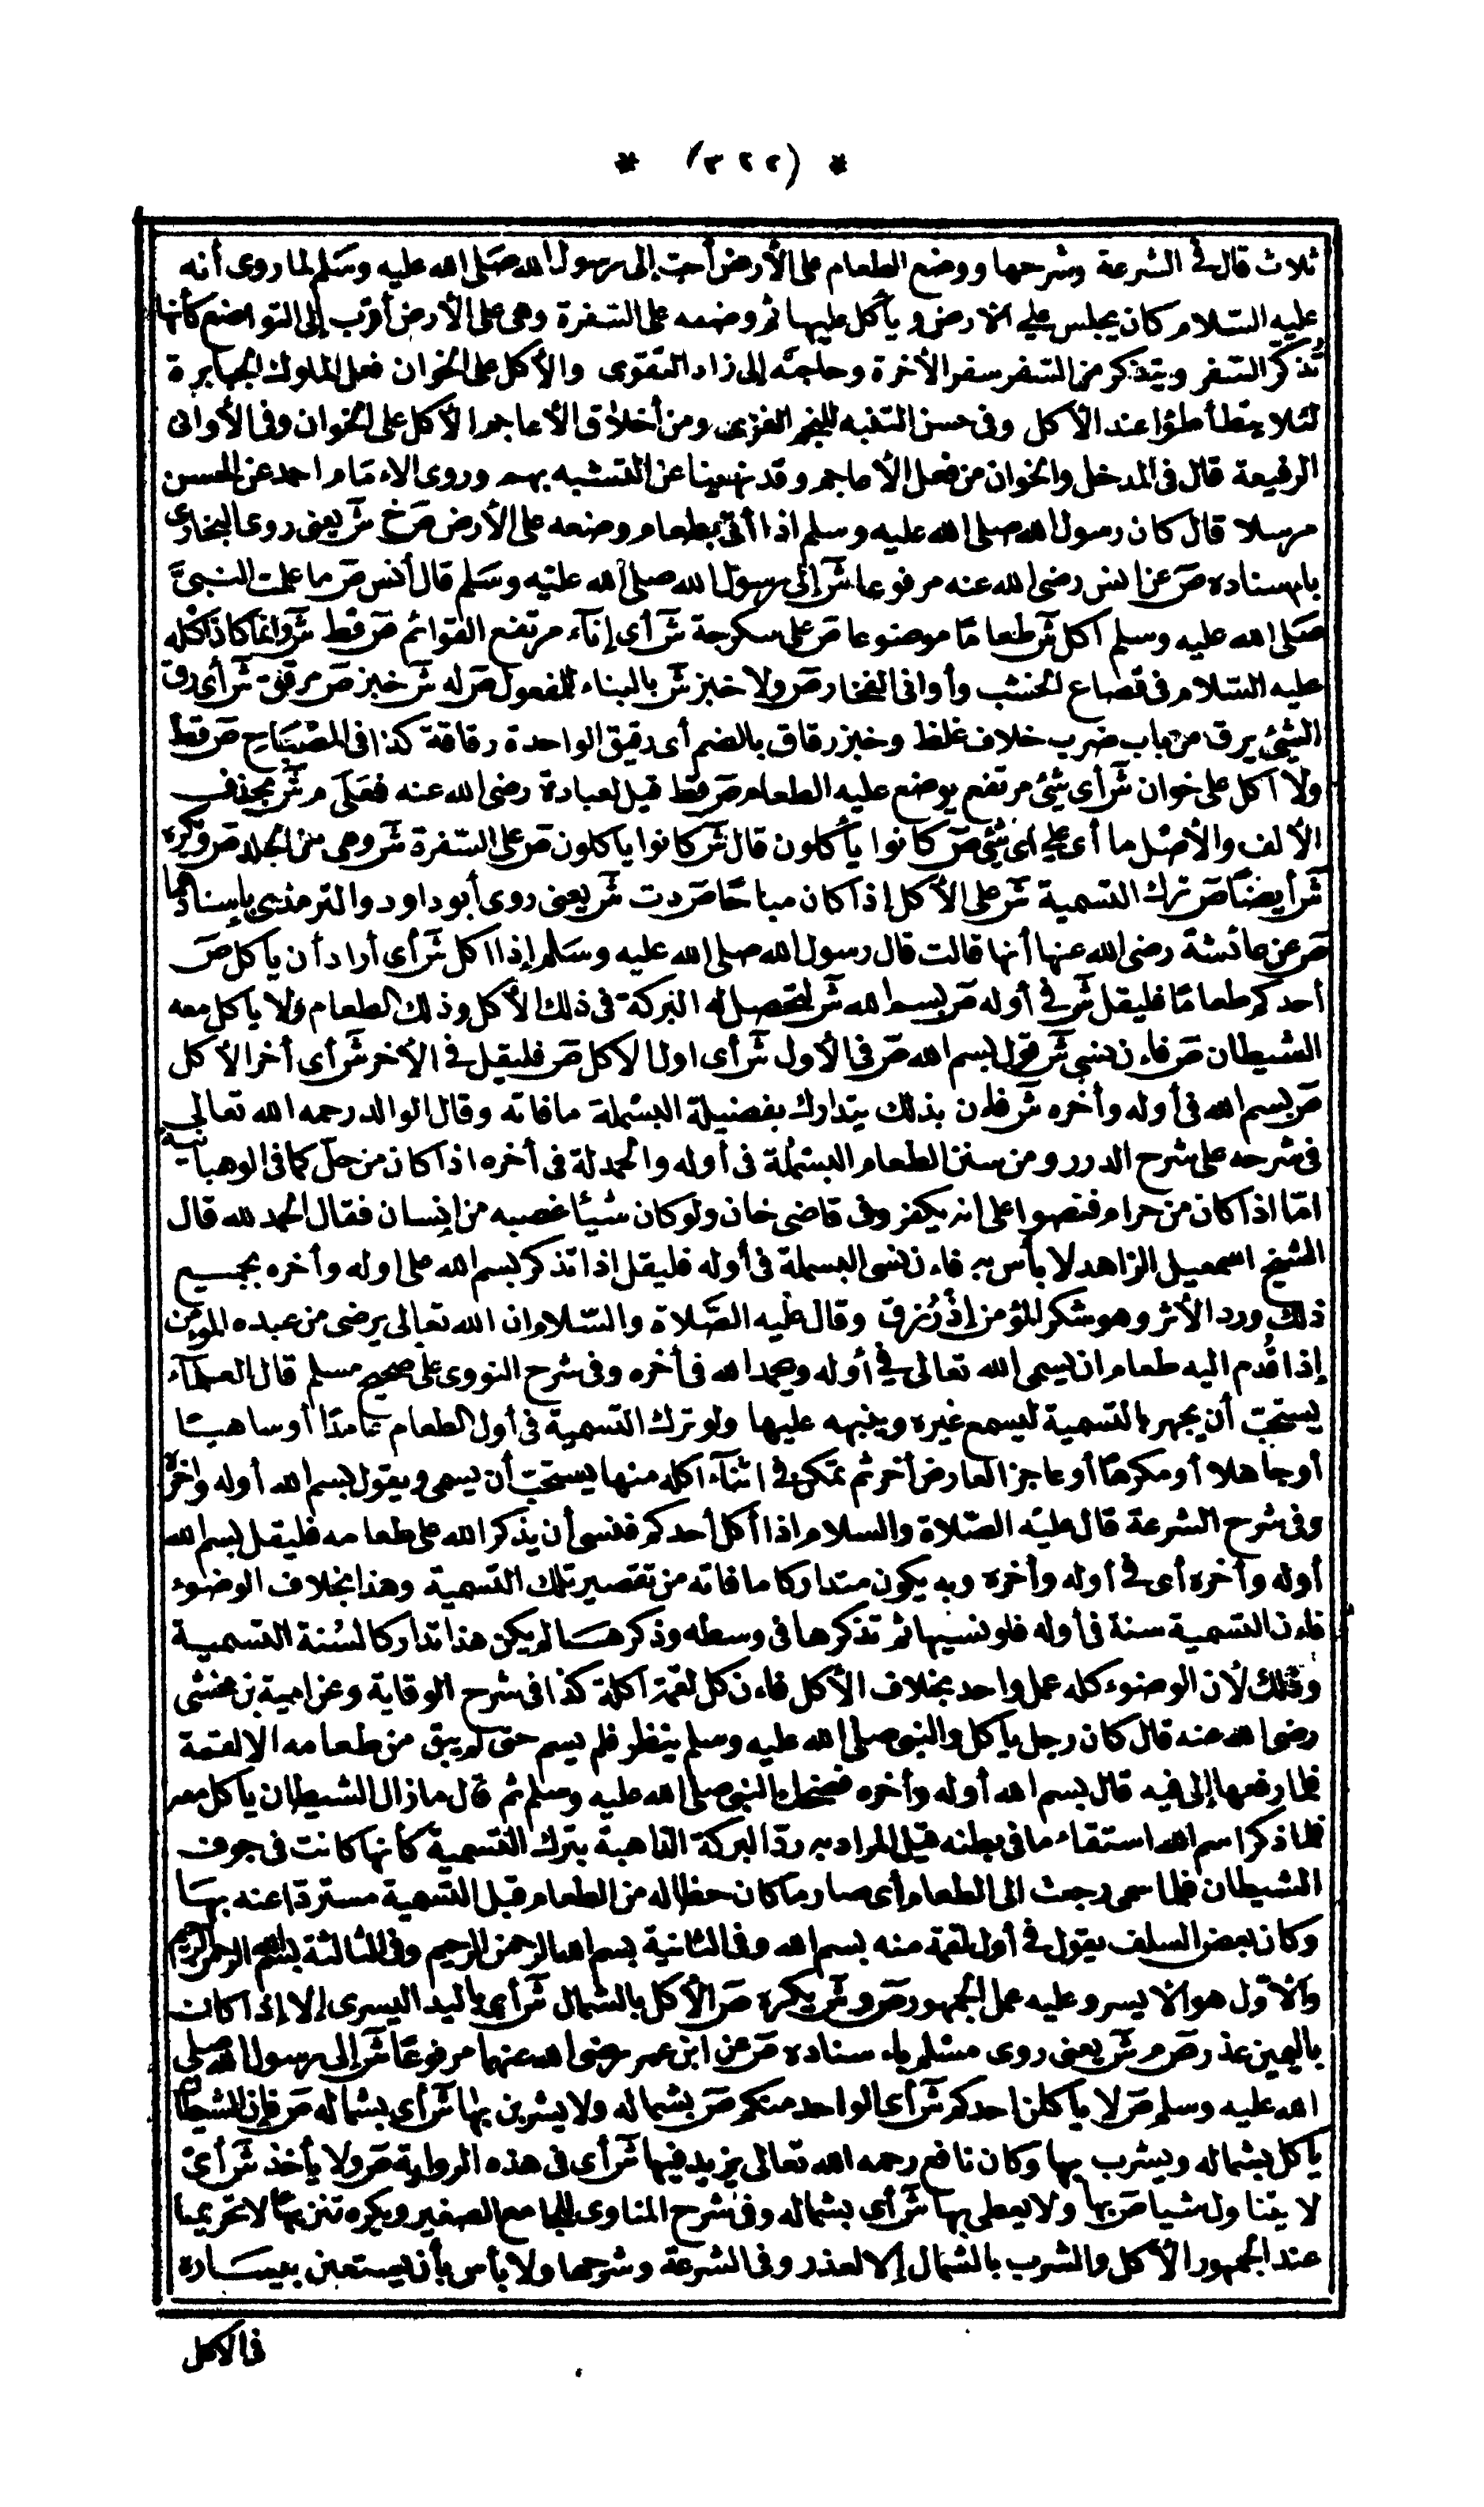 * (٢٢٢) *
ثلاث قال في الشرعة وشرحها ووضع الطعام على الأرض أحب إلى رسول الله صلى الله عليه وسلم لما روى أنه
عليه السلام كان يجلس على الارض ويأكل عليها ثم وضعه على السفرة وهى على الأرض أقرب إلى التواضع كأنها
تذكر السفر ويتذكر من السفر سفر الأخرة وحاجته إلى زاد التقوى والأكل على الخوان فعل الملوك الجبابرة
لئلا يتطأطؤا عند الأكل وفى حسن التنبه للنجم الغزى ومن أخلاق الأعاجم الأكل على الخوان وفى الأوانى
الرفيعة قال فى المدخل والخوان من فعل الأعاجم وقد نهينا عن التشبه بهم وروى الاءمام احمد عن الحسن
مرسلا قال كان رسول الله صلى الله عليه وسلم اذا أتى بطعام وضعه على الأرض ص خ ش يعنى روى البخارى
باسناده ص عن انس رضى الله عنه مرفوعا ش إلى رسول الله صلى الله عليه وسلم قال أنس ص ما علمت النبىّ
صلى الله عليه وسلم اكل ش طعاما موضوعا ص على سكرجة ش أى إناء مرتفع القوائم ص قط ش وانما كان أكله
عليه السلام فى قصاع الخشب وأوانى الفخار ص ولا خبز ش بالبناء للمفعول ص له ش خبز ص مرقق ش أى رق
الشئ يرق من باب ضرب خلاف غلظ وخبز رقاق بالضم أى رقيق الواحدة رقاقة كذا فى المصباح ص قط
ولا اكل على خوان ش أى شئ مرتفع يوضع عليه الطعام ص قط قيل لعبادة رضى الله عنه فعلى م ش بحذف
الألف والأصل ما أى على أى شئ ص كانوا يأكلون قال ش كانوا يأكلون ص على السفرة ش وهى من الجلد ص ويكره
ش أيضا ص ترك التسمية ش على الأكل إذا كان مباحا ص د ت ش يعنى روى أبو داود والترمذى بإسنادهما
ص عن عائشة رضى الله عنها أنها قالت قال رسول الله صلى الله عليه وسلم إذا اكل ش أى أراد أن يأكل ص
أحدكم طعاما فليقل ش فى أوله ص بسم الله ش لتحصل له البركة فى ذلك الأكل وذلك الطعام ولا يأكل معه
الشيطان ص فاءن نسى ش قول بسم الله ص فى الأول ش أى اول الاكل ص فليقل فى الأخر ش أى أخر الأكل
ص بسم الله فى أوله وأخره ش فاءن بذلك يتدارك بفضيلة البسملة ما فاته وقال الوالد رحمه الله تعالى
فى شرحه على شرح الدرر ومن سنن الطعام البسملة فى أوله والحمدلة فى أخره اذا كان من حل كما فى الوهبانية
امّا اذا كان من حرام فنصوا على انه يكفر وفى قاضى خان ولو كان شيئا غصبه من إنسان فقال الحمد لله قال
الشيخ اسمعيل الزاهد لا بأس به فاءن نسى البسملة فى أوله فليقل اذا تذكر بسم الله على اوله وأخره بجميع
ذلك ورد الأثر وهو شكر للمؤمن إذ رُزق وقال عليه الصلاة والسلام ان الله تعالى يرضى من عبده المؤمن
إذا قُدم اليه طعام ان يسمى الله تعالى فى أوله ويحمد الله فى أخره وفى شرح النووى على صحيح مسلم قال العلماء
يستحب أن يجهر بالتسمية ليسمع غيره وينبهه عليها ولو ترك التسمية فى أول الطعام عامدا أو ساهيا
أو جاهلا أو مكرها أو عاجزا لعارض أخر ثم تمكن فى اثناء اكله منها يستحب أن يسمى ويقول بسم الله أوله واخره
وفى شرح الشرعة قال عليه الصلاة والسلام اذا أكل أحدكم فنسى أن يذكر الله على طعامه فليقل بسم الله
أوله وأخره أى فى أوله وأخره وبه يكون متداركا ما فاته من تقصير تلك التسمية وهذا بخلاف الوضوء
فاءن التسمية سنة فى أوله فلو نسيها ثم تذكرها فى وسطه وذكرها لم يكن هذا تداركا لسنة التسمية
وذلك لأن الوضوء كله عمل واحد بخلاف الأكل فاءن كل لقمة اكلة كذا فى شرح الوقاية وعن امية بن مخشى
رضى الله عنه قال كان رجل يأكل والنبى صلى الله عليه وسلم ينظر فلم يسم حتى لم يبق من طعامه الا لقمة
فلما رفعها إلى فيه قال بسم الله أوله وأخره فضحك النبى صلى الله عليه وسلم ثم قال ما زال الشيطان يأكل معه
فلما ذكر اسم الله استقاء ما فى بطنه قيل المراد به ردّ البركة الذاهبة بترك التسمية كأنها كانت فى جوف
الشيطان فلما سمى رجعت الى الطعام أى صار ما كان حظا له من الطعام قبل التسمية مستردا عنه بها
وكان بعض السلف يقول فى أول لقمة منه بسم الله وفى الثانية بسم الله الرحمن الرحيم وفى الثالثة بسم الله الرحمن الرحيم
والأول هو الأيسر وعليه عمل الجمهور ص و ش يكره ص الأكل بالشمال ش أى باليد اليسرى إلا إذا كان
باليمين عذر ص م ش يعنى روى مسلم باءسناده ص عن ابن عمر رضى الله عنهما مرفوعا ش إلى رسول الله صلى
الله عليه وسلم ص لا يأكلن احدكم ش أى الواحد منكم ص بشماله ولا يشربن بها ش أى بشماله ص فإن الشيطان
يأكل بشماله ويشرب بها وكان نافع رحمه الله تعالى يزيد فيها ش أى فى هذه الرواية ص ولا يأخذ ش أى
لا يتناول شيا ص بها ولا يعطى بها ش أى بشماله وفى شرح المناوى للجامع الصغير ويكره تنزيها لا تحريما
عند الجمهور الأكل والشرب بالشمال إلا لعذر وفى الشرعة وشرحها ولا بأس بأن يستعين بيساره
فى الاكل